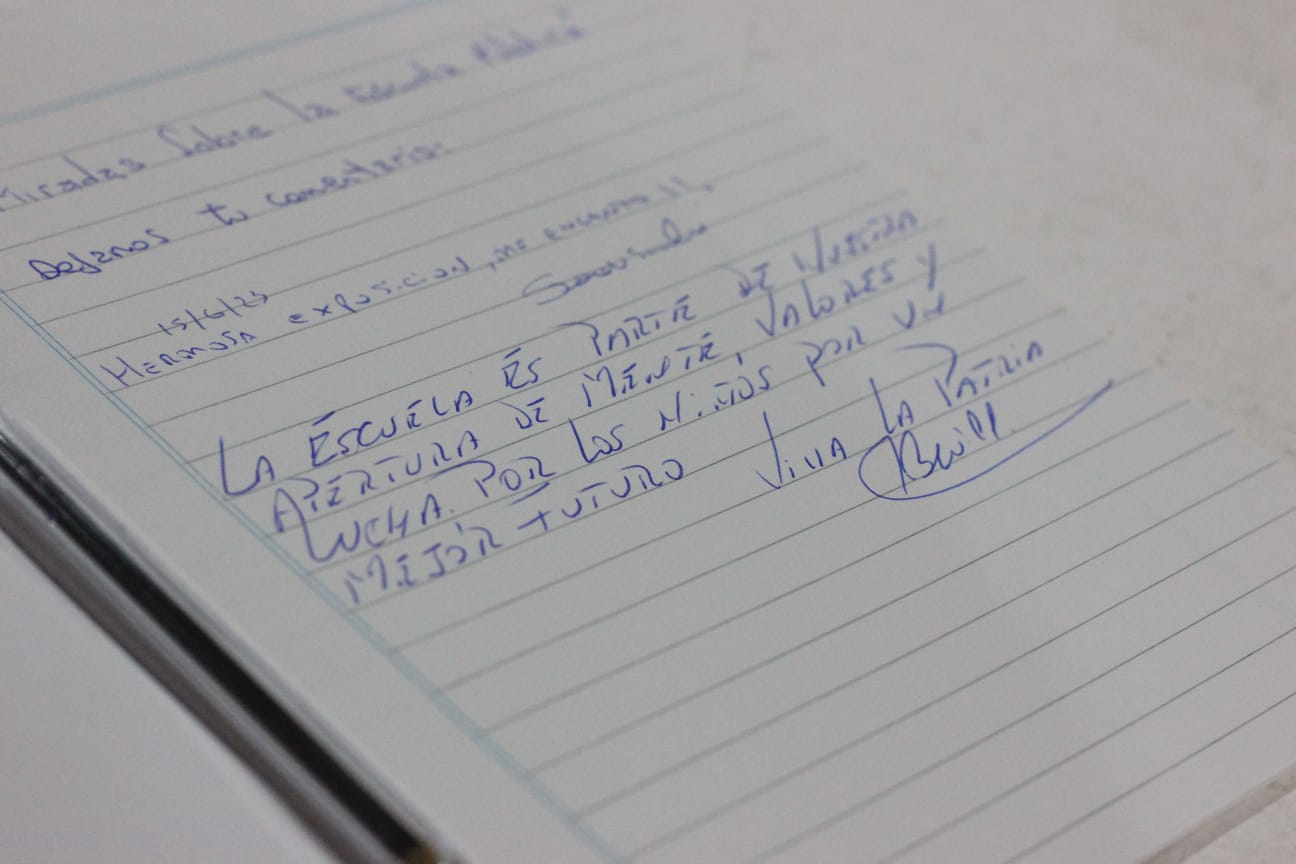 Miradas Sobre la Escuela Pública
Dejanos tu comentario:
15/6/23
HERMOSA exposición, me encanto!!.
LA ESCUELA ES PARTE DE NUESTRA
APERTURA DE MENTE, VALORES Y
LUCHA. POR LOS NIÑOS POR UN
MEJOR FUTURO VIVA LA PATRIA